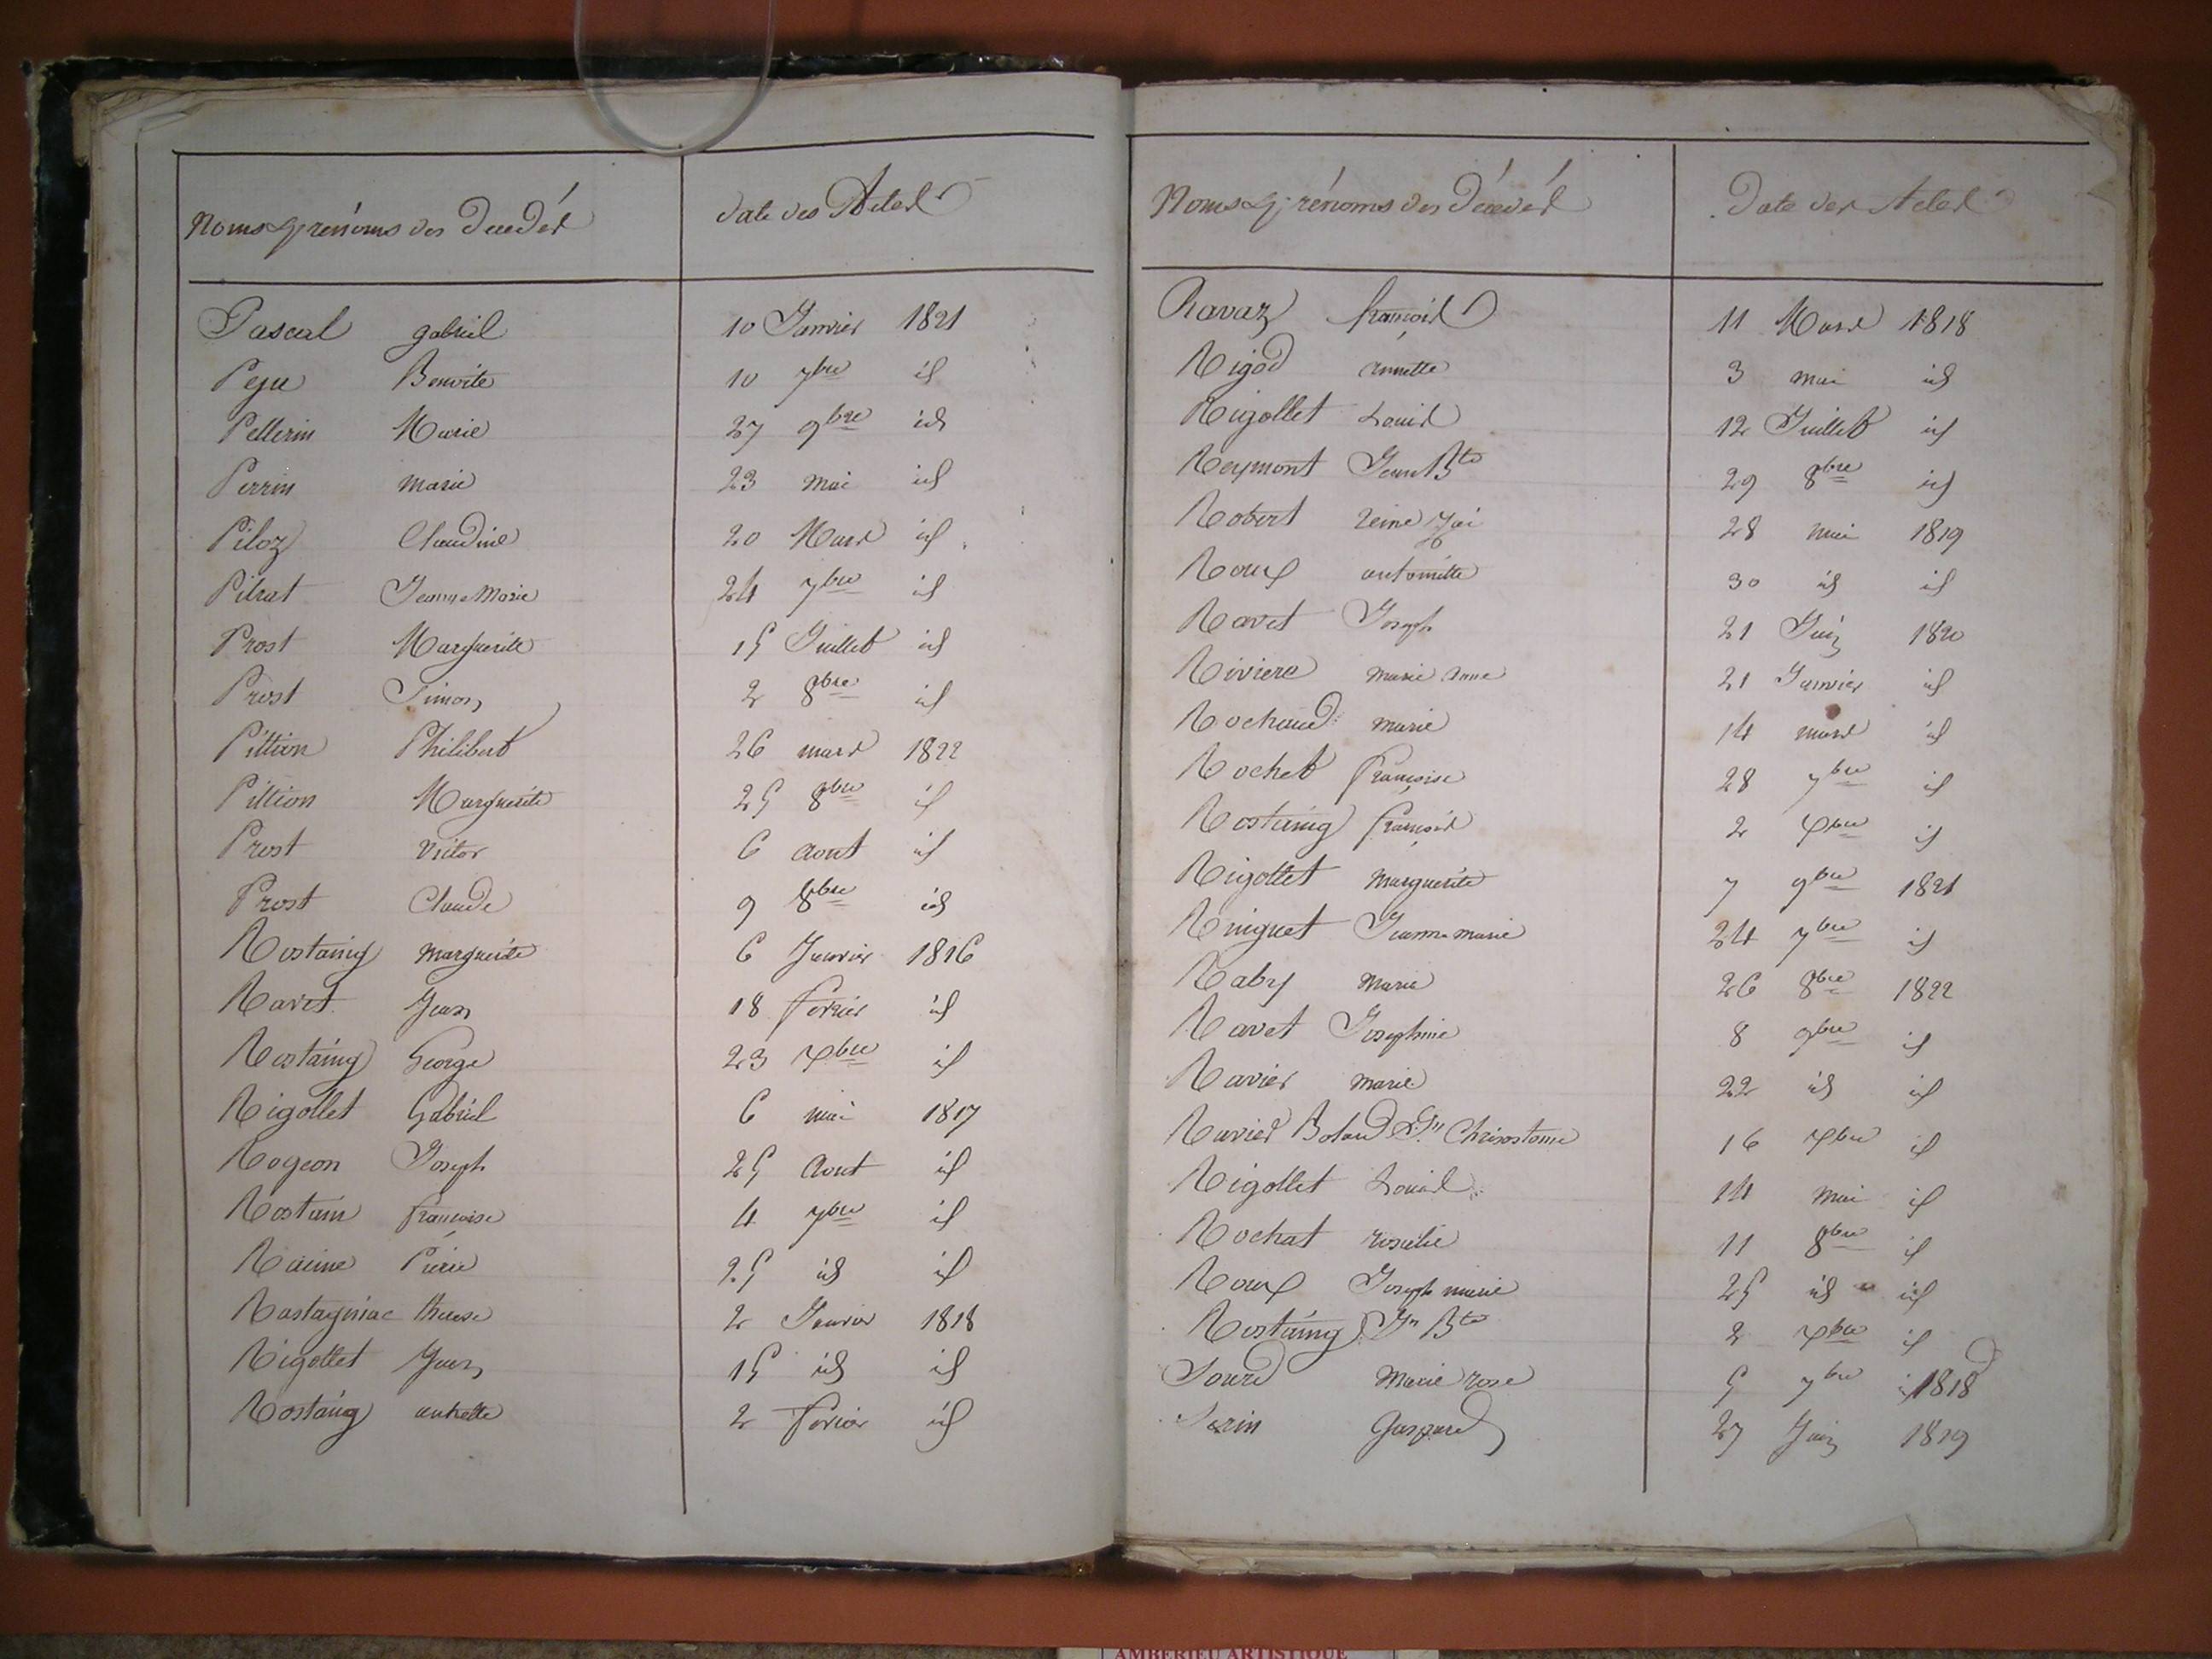 Noms & prénoms des Décédés date des Actes
Pascal gabriel 10 Janvier 1821
Peju Benoite 10 7bre id
Pellerin Marie 27 9bre id
Perrin marie 23 mai id
Piloz Claudine 20 Mars id
Pitrat Jeanne Marie 24 7bre id
Prost Marguerite 15 Juillet id
Prost Simon 2 8bre id
Pittion Philibert 26 mars 1822
Pittion Marguerite 25 8bre id
Prost Victor 6 aout id
Prost Claude 9 8bre id
Rostaing marguerite 6 Janvier 1816
Ravet Jean 18 fevrier id
Rostaing George 23 Xbre id
Rigollet Gabriel 6 mai 1817
Rogeon Joseph 25 Aout id
Rostain françoise 4 7bre id
Racine Pierre 25 id id
Rastagniac therese 2 Janvier 1818
Rigollet Jean 15 id id
Rostaing 2 fevrier id
Noms & prénoms des Décédés Date des Actes
Ravaz françois 11 Mars 1818
Rigod 3 mai id
Rigollet Louis 12 Juillet id
Reymont Jean Bte 29 8bre id
Robert reine 28 mai 1819
Roux antoinette 30 id id
Ravet Joseph 21 Juin 1820
Riviere marie Anne 21 Janvier id
Rochaud marie 14 mars id
Rochet françoise 28 7bre id
Rostaing françois 2 Xbre id
Rigollet Marguerite 7 9bre 1821
Ringuet Jeanne marie 24 7bre id
Raby Marie 26 8bre 1822
Ravet Josephine 8 9bre id
Ravier marie 22 id id
Ravier Jn Chrisostome 16 Xbre id
Rigollet Louis 14 mai id
Rochat rosalie 11 8bre id
Roux Joseph marie 25 id id
Rostaing Jn Bte 2 Xbre id
Sourd Marie rose 5 7bre 1818
Gaspard 27 Juin 1819
AMBERIEU ARTISTIQUE